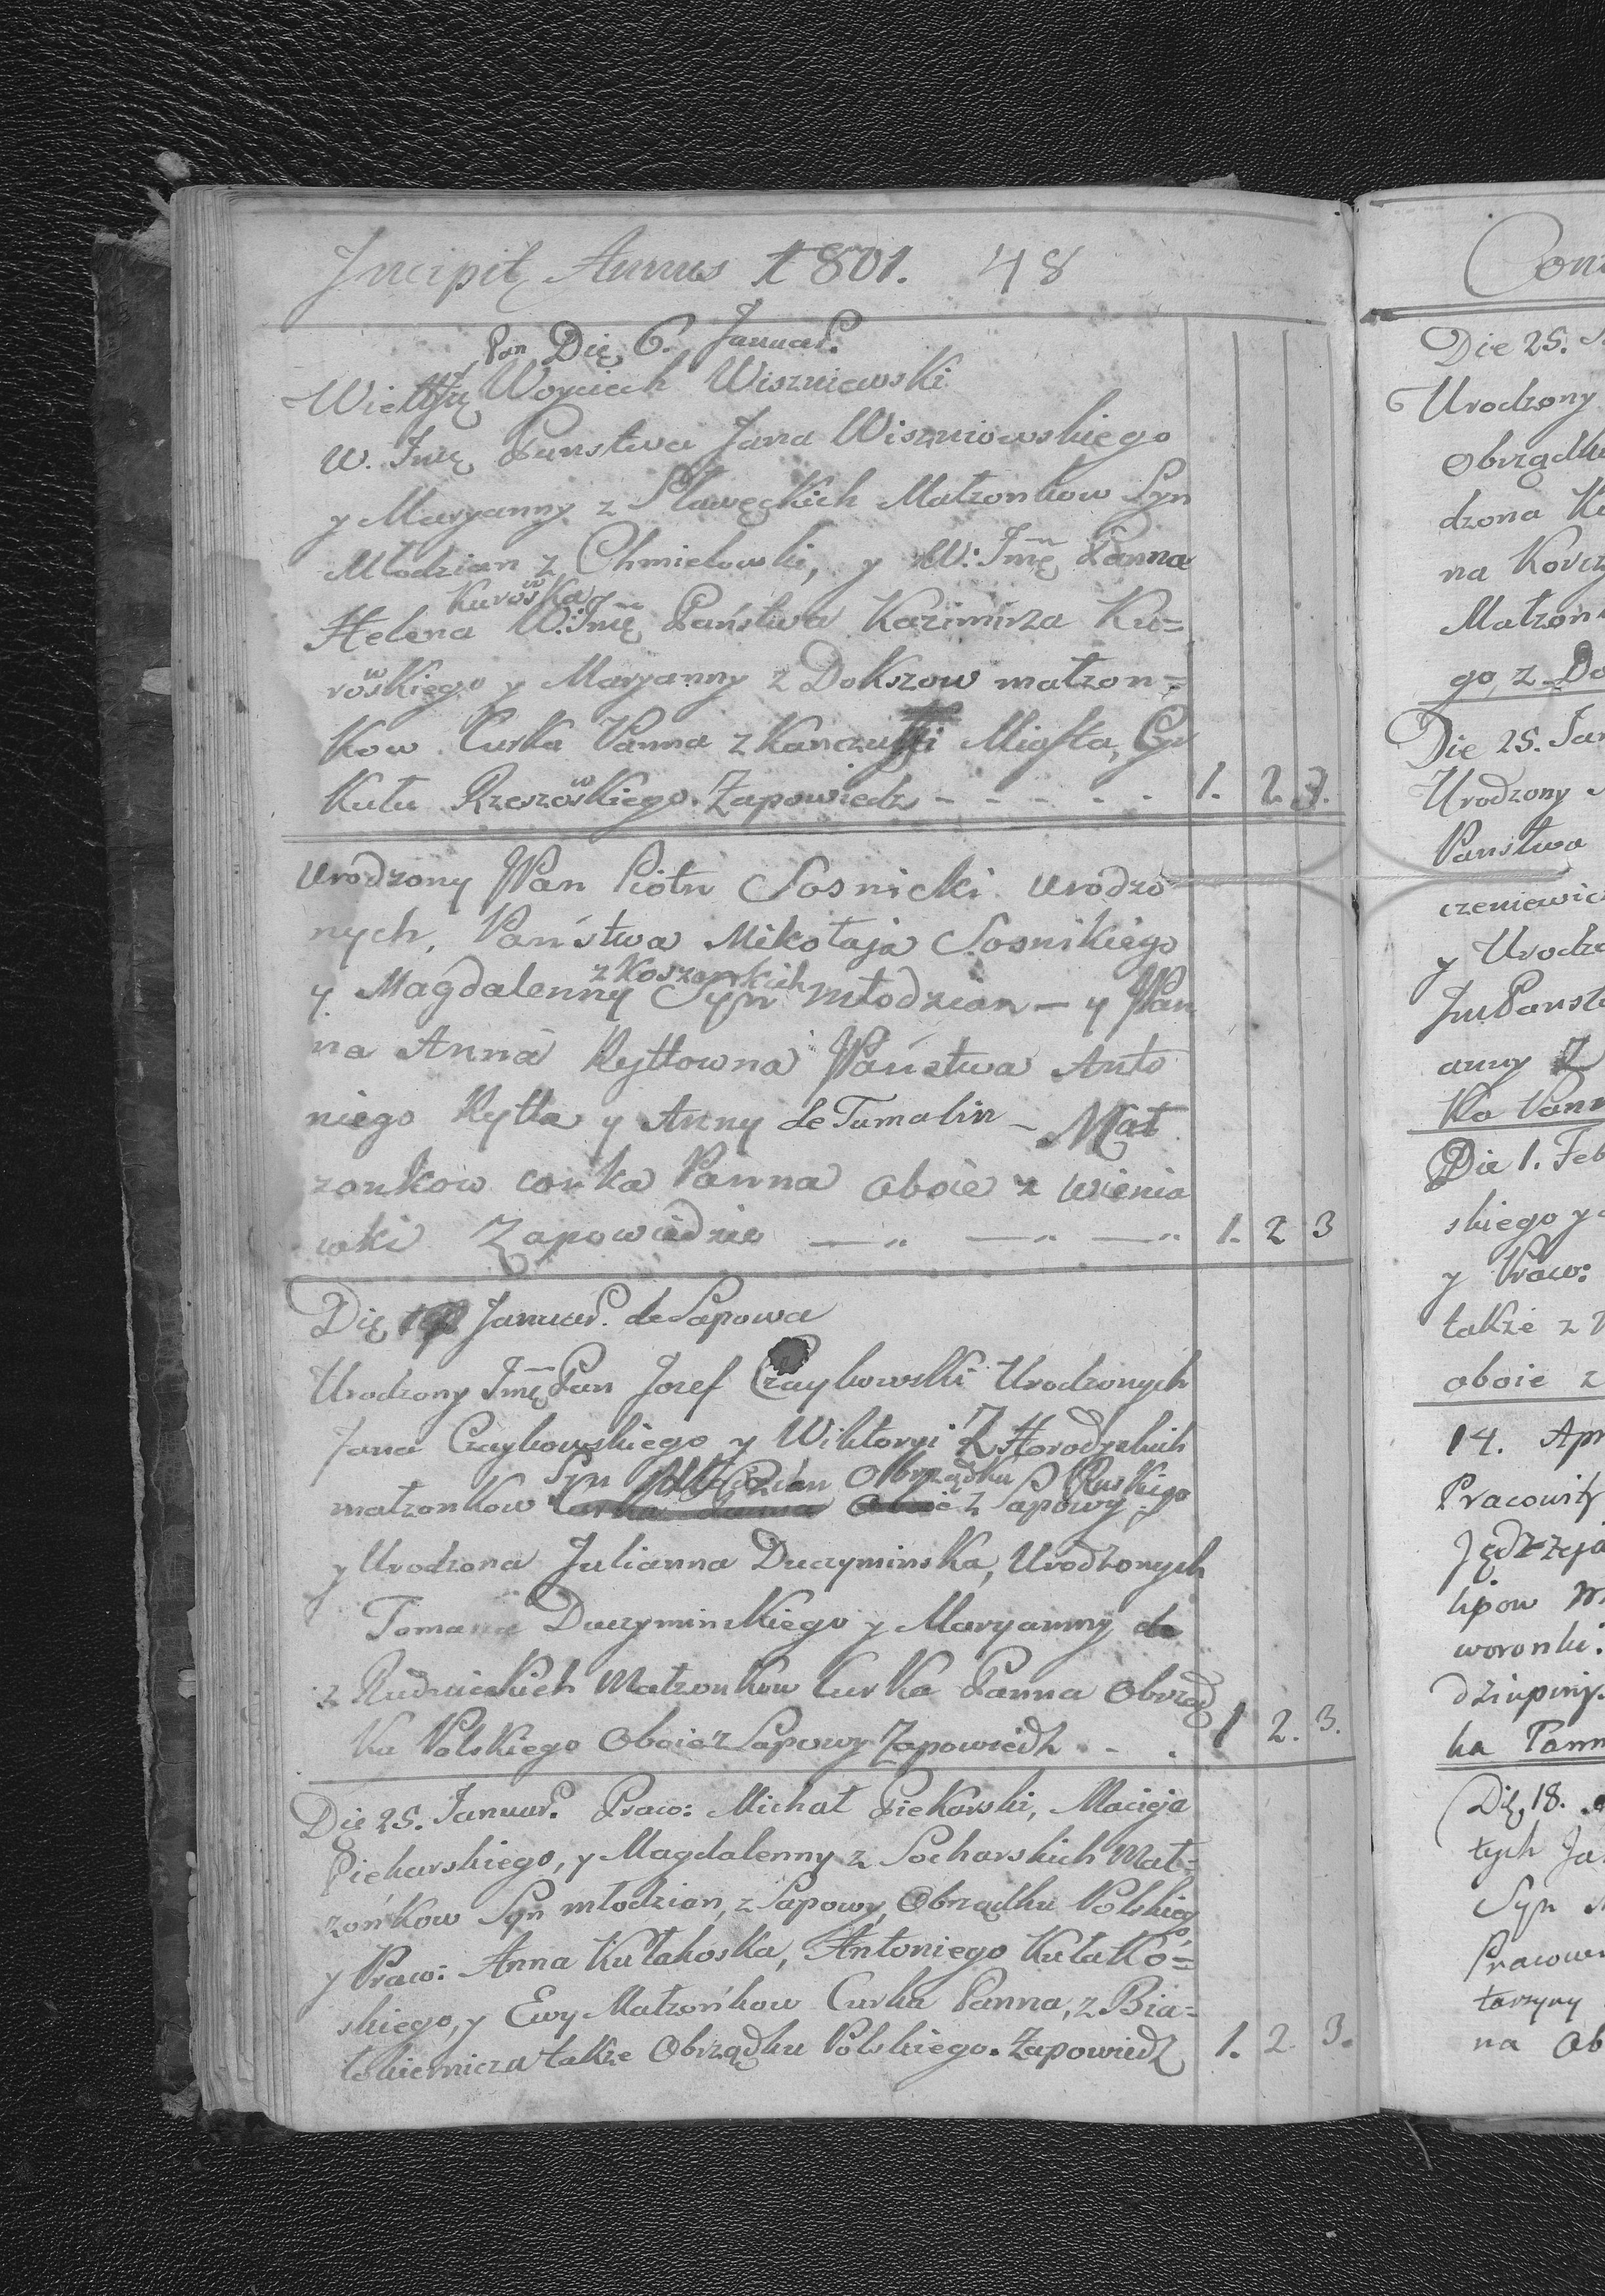 Incipit Annus 1801. 48
Die 6. Januar.
Pan
Woyciech Wiszniewski
W. Jmę Panstwa Jana Wiszniowskiego
y Maryanny z Sławęckich Małzonkow Syn
Młodzian z Chmielowki, y W: Jmę Panna
Kurowska
Helena W: Jmę Państwa Kazimirza Ku=
rowskiego y Maryanny z Dokszow małzon=
kow Curka Panna z Kanczugi Miasta, Cyr
kułu Rzeszowskiego. Zapowiedz - - - - - 1. 2. 3.
Urodzony JPan Piotr Sosnicki urodzo
nych, Państwa Mikołaja Sosnikiego
z Koszarskich
y Magdalenny Syn młodzian – y JPan
na Anna Rytłowna JPaństwa Anto
niego Rytla y Anny de Tumalin – Mał
zonkow corka Panna oboie z Winia
wki Zapowiedzie — „ — „ — „ 1. 2 3
Die Januar. de Sapowa
Urodzony Jmę Pan Jozef Czaykowski Urodzonych
Jana Czaykowskiego y Wiktoryi Z Horodyskich
Syn Młodzian Obrządku Ruskiego
małzonkow Curka Panna Oboie z Sapowy
y Urodzona Julianna Duczyminska, Urodzonych
Tomasza Duczyminskiego y Maryanny de
z Rudnickich Małzonkow Curka Panna Obrząd
ku Polskiego Oboie z Sapowy Zapowiedz - . 1 2. 3.
Die 25. Januar. Praco: Michał Piekarski, Macieja
Piekarskiego, y Magdalenny z Socharskich Mał=
zońkow Syn młodzian, z Sapowy, Obrządku Polskiego
y Praw: Anna Kułakoska, Antoniego Kułako=
skiego, y Ewy Małzońkow Curka Panna, z Bia=
łokiernicza także Obrządku Polskiego. Zapowiedz 1. 2. 3.
Die 25.
Urodzony
Obrządku
dzona
na
Małzon
go z
Die 25. Jan
Urodzony
Panstwa
czeniewic
y Urodzo
JmPanst
anny Z
ka Pann
Die 1. Feb
skiego y
y Praw:
także z
oboie z
14. Apr
Pracowity
Jędrzeja
lipow
woronki.
ka Pann
Die 18.
tych Ja
Syn
Pracowi
tarzyny
na Ob